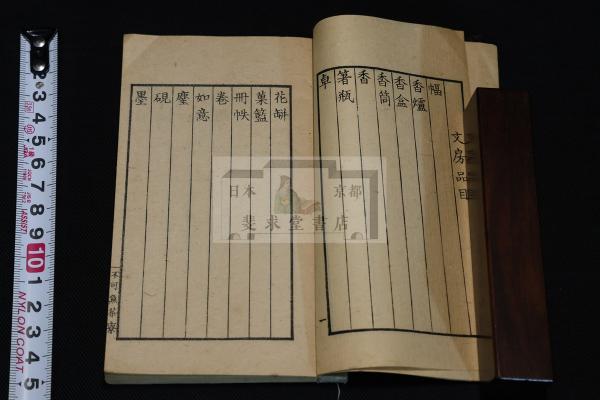 文房品目
幅
香爐
香盒
香筒
香
箸瓶
卓
一
花缾
菓籃
冊帙
卷
如意
麈
硯
墨
日本 京都
斐求堂書店
2
3
4
5
6
7
8
9
10
1
2
3
4
5
NYLON COAT